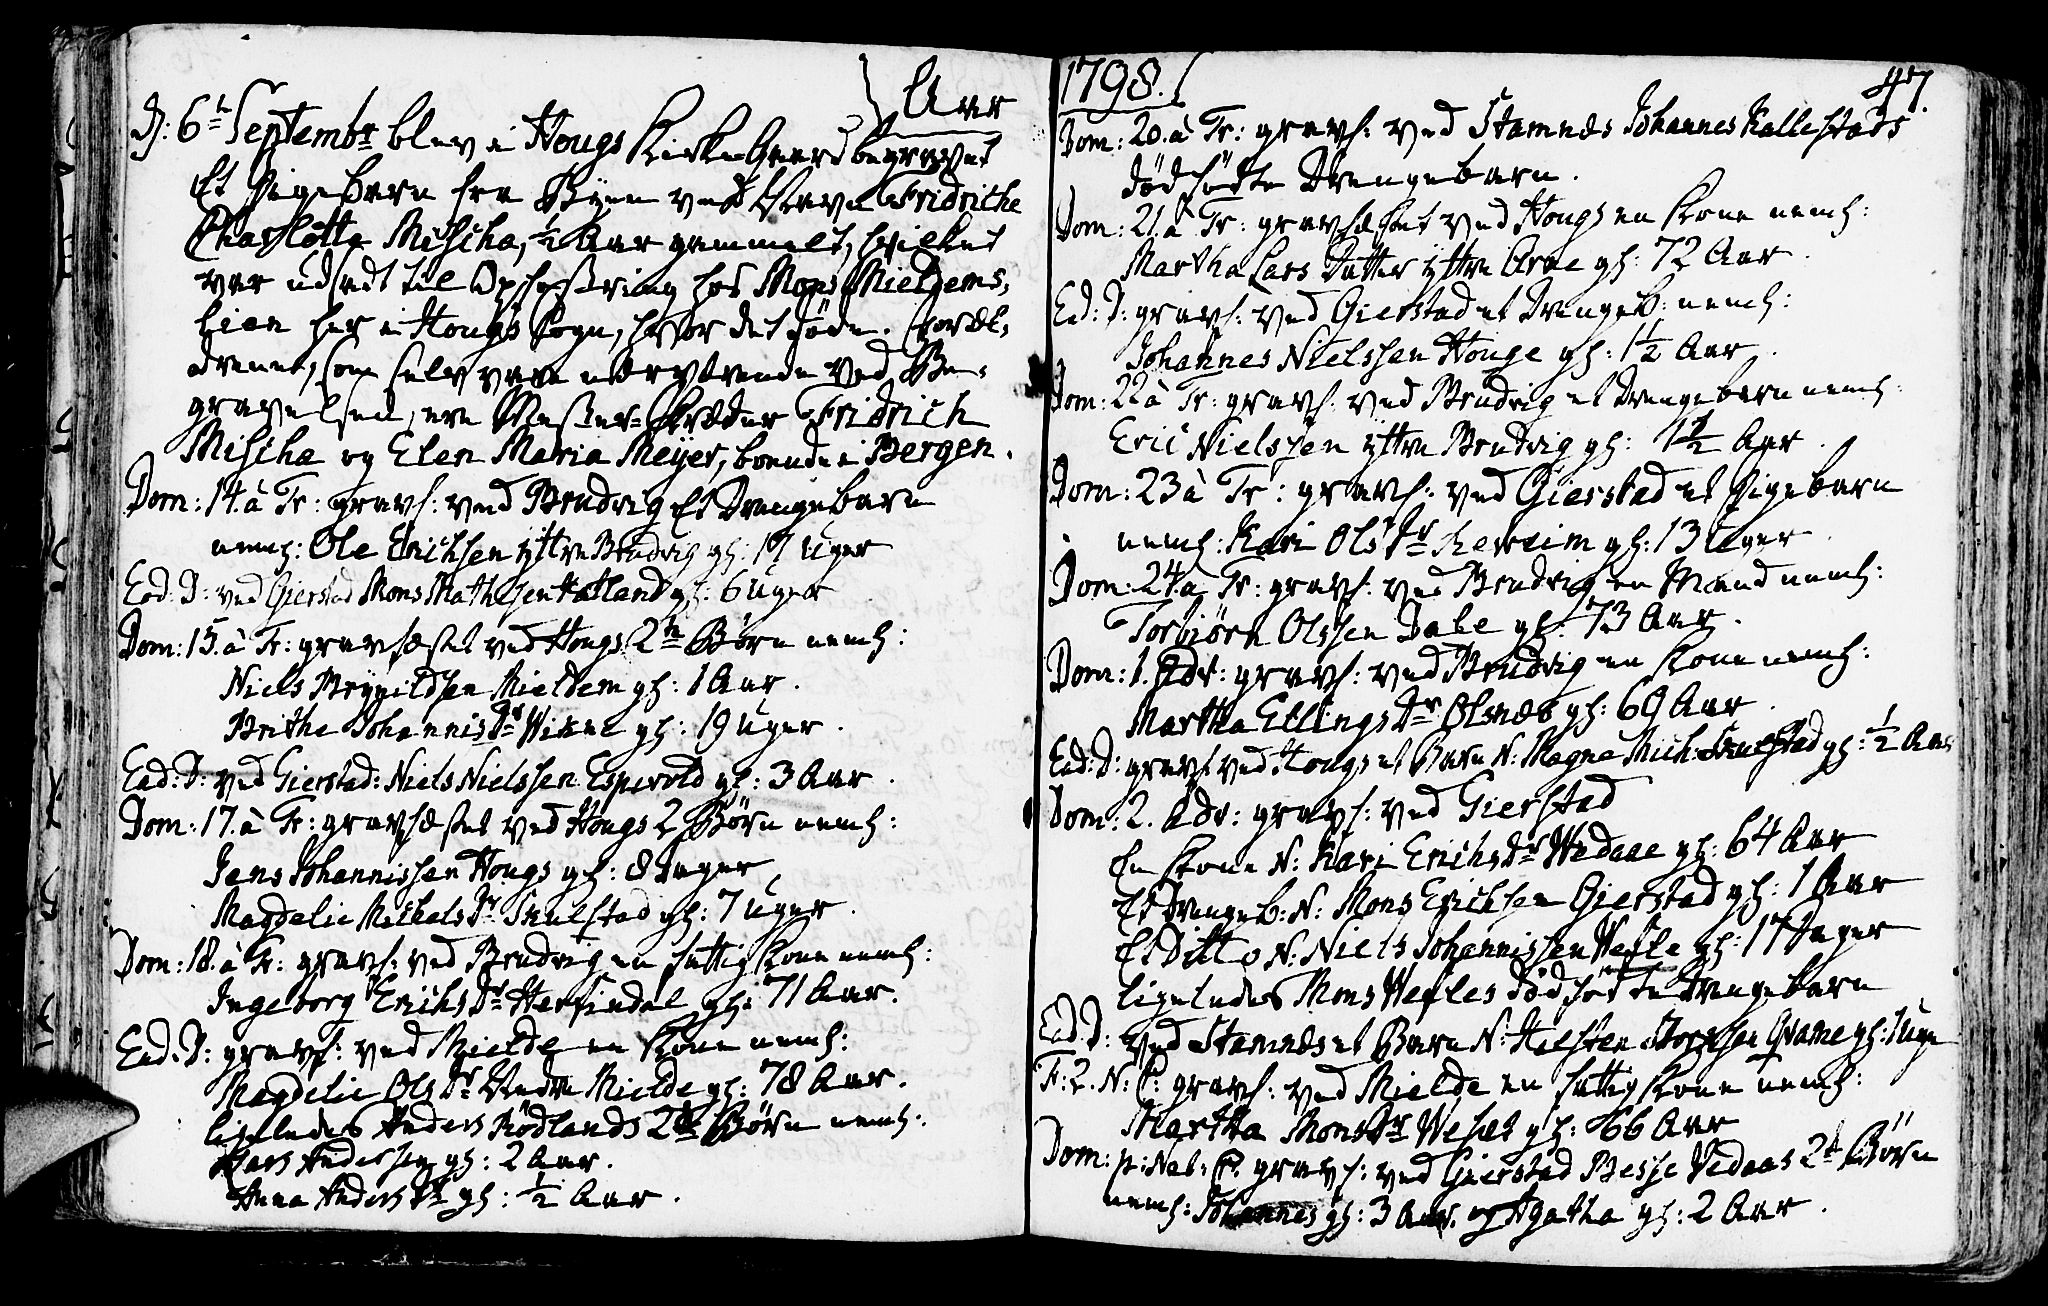 Aar
D: 6te Septembr blev i Hougs Kirke Gaard begravet
Et Pigebarn fra Byen ved Navn Fridriche
Charlotta Mischa, 1/2 Aar gammelt, hvilket
var udsadt til Opfostring hos Mons Mieldems,
lien her i Hougs Sogn, hvor det døde. Foræl,
drene, som selv vare nærværende ved Be-
gravelsen, ere Mester-Skræder Fridrich
Mischa og Elen Maria Meyer, boende i Bergen.
Dom: 14. à Tr: gravf: ved Brudvig Et Drengebarn
neml: Ole Erichsen yttre Brudvig gl: 17 Uger
Ead: D: ved Gierstad Mons Mathisen Hatland gl: 6 Uger
Dom: 15. à Tr: gravfæstet ved Hougs 2de Børn neml:
Niels Brynildsen Mieldem gl: 1 Aar.
Brithe Johannis Dr Wikne gl: 19 Uger.
Ead: D: ved Gierstad: Niels Nielssen Espevold gl: 3 Aar.
Dom: 17. à Tr: gravfæstet ved Hougs 2 Børn neml:
Jens Johannissen Hougs gl: 8 Dager
Magdelie Michels Dr Skulstad gl: 7 Uger.
Dom: 18. à Tr: gravf: ved Brudvig en fattig Kone neml:
Ingeborg Erichs Dr Herfindal gl: 71 Aar.
Ead: D: gravf: ved Mielde en Kone neml:
Magdelie Ols Dr Nedre Mielde gl: 78 Aar.
ligeledes Anders Rødlands 2de Børn neml:
Lars Anderssen gl: 2 Aar.
Anna Anders Dr gl: 1/2 Aar.
1798.
47.
Dom: 20. à Tr: gravf: ved Stamnæs Johannes Kallestads
dødfødte Drengebarn.
Dom: 21. à Tr: gravfæstet ved Hougs en Kone neml:
Martha Lars Datter yttre Arne gl: 72 Aar.
Ead: D: gravf: ved Gierstad et Drengeb: neml:
Johannes Nielssen Houge gl: 1 1/2 Aar.
Dom: 22 à Tr: gravf: ved Brudvig et Drengebarn neml:
Eric Nielssen yttre Brudvig gl: 1 1/2 Aar.
Dom: 23 à Tr: gravf: ved Gierstad et Pigebarn
neml: Kari Ols Dr gl: 13 Uger.
Dom: 24. à Tr: gravf: ved Brudvig en Mand neml:
Torbiørn Olssen Dale gl: 73 Aar.
Dom: 1. Adv: gravf: ved Brudvig en Kone neml:
Martha Ellings Dr Olsnæs gl: 69 Aar.
Ead: D: gravf: ved Hougs et Barn N: Magne Mich: Skulstad gl: 1/2 Aar
Dom: 2. Adv: gravf: ved Gierstad
En Kone N: Kari Erichs Dr Wedaae gl: 64 Aar
Et Drengeb: N: Mons Erichsen Gierstad gl: 1 Aar
Et Ditto N: Niels Johannissen Wefle gl: 17 Dager
ligeledes Mons Wefles dødfødte Drengebarn
Ead: D: ved Stamnæs et Barn N: Halsten gl: 1 Uge
F: 2. N: C: gravf: ved Mielde en fattig Kone neml:
Martha Mons Dr Wefle gl: 66 Aar
Dom: p: Nat: C: gravf: ved Gierstad Besse Vedaas 2de Børn
neml: Johannes gl: 3 Aar. og Agatha gl: 2 Aar.